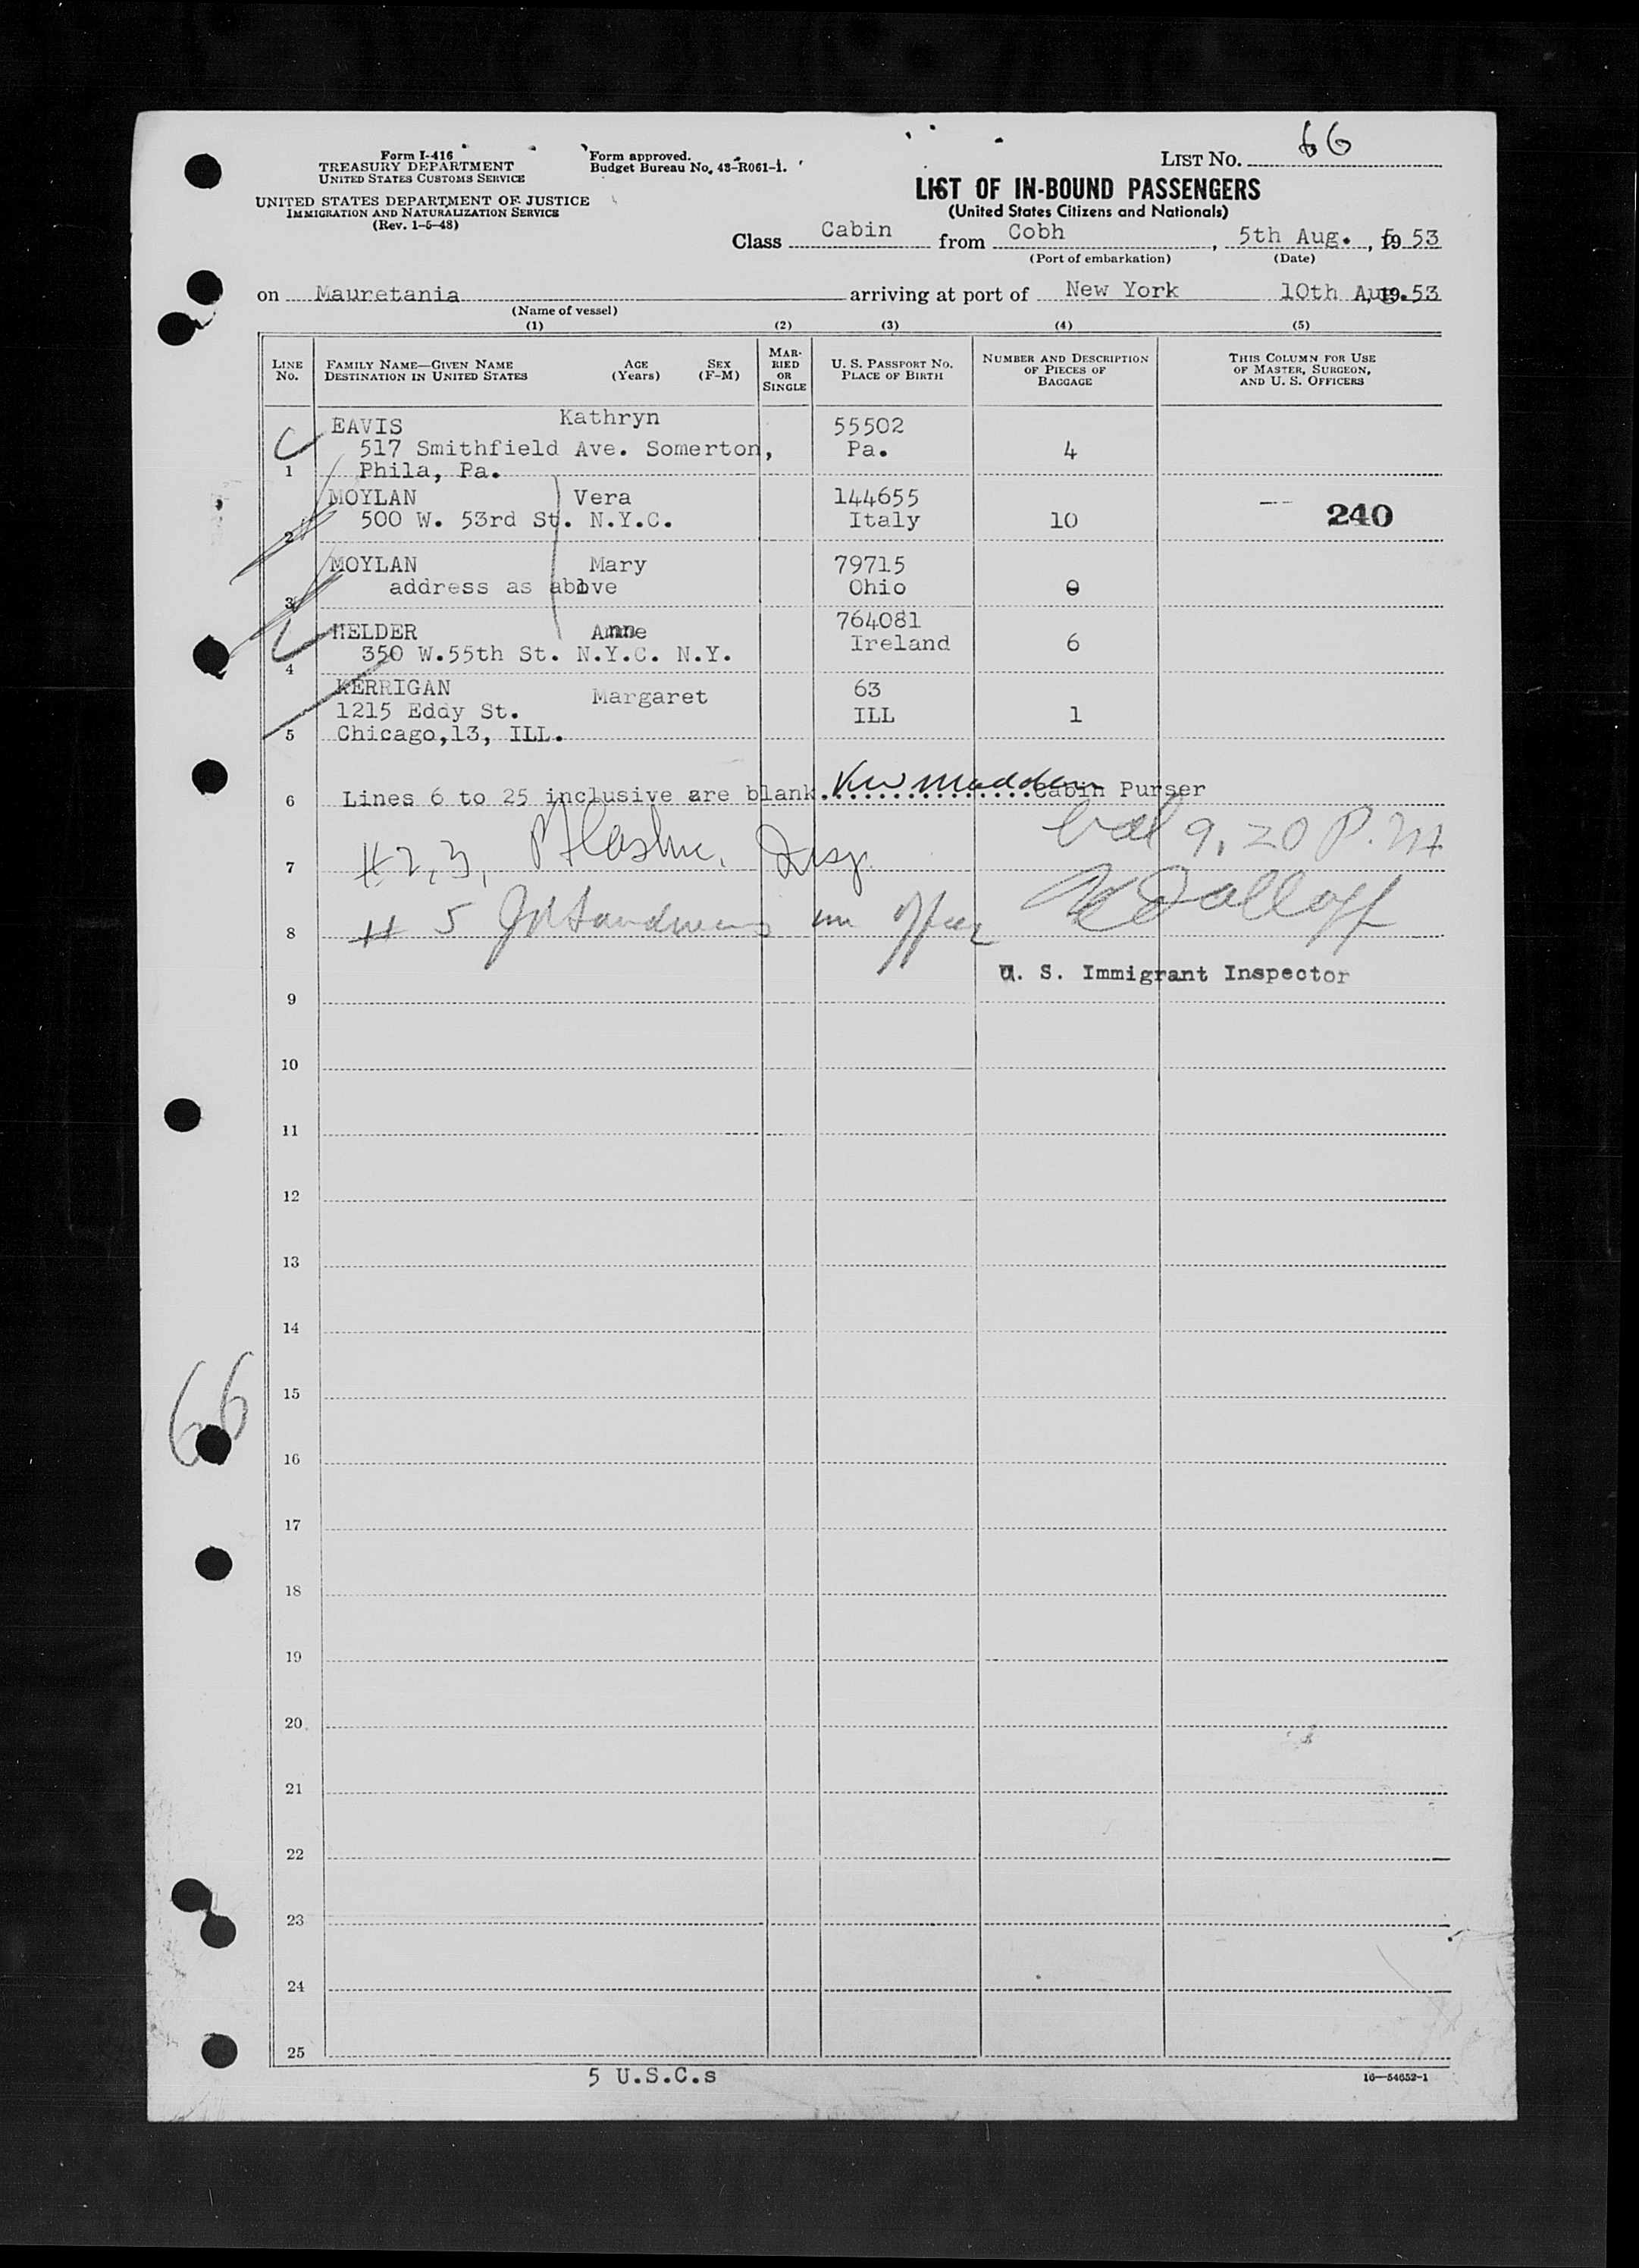 Form I-416
TREASURY DEPARTMENT
UNITED STATES CUSTOMS SERVICE
UNITED STATES DEPARTMENT OF JUSTICE
IMMIGRATION AND NATURALIZATION SERVICE
(Rev. 1-5-48)
Form approved.
Budget Bureau No. 43-R061-1.
LIST No. 66
LIST OF IN-BOUND PASSENGERS
(United States Citizens and Nationals)
Class Cabin from Cobh, 5th Aug., 19 53
(Port of embarkation) (Date)
on Mauretania arriving at port of New York 10th Aug. 19 53
(Name of vessel)
(1) (2) (3) (4) (5)
LINE No. FAMILY NAME—GIVEN NAME DESTINATION IN UNITED STATES AGE (Years) SEX (F-M) MARRIED OR SINGLE U. S. PASSPORT No. PLACE OF BIRTH NUMBER AND DESCRIPTION OF PIECES OF BAGGAGE THIS COLUMN FOR USE OF MASTER, SURGEON, AND U. S. OFFICERS
EAVIS Kathryn 55502
517 Smithfield Ave. Somerton, Pa. 4
1 Phila, Pa.
MOYLAN Vera 144655
500 W. 53rd St. N.Y.C. Italy 10 240
2
MOYLAN Mary 79715
address as above Ohio 0
3
HELDER Anne 764081
350 W.55th St. N.Y.C. N.Y. Ireland 6
4
KERRIGAN Margaret 63
1215 Eddy St. ILL 1
5 Chicago,13, ILL.
6 Lines 6 to 25 inclusive are blank. Cabin Purser
7 # 2, 3, Insp. 9.20 P.M
8 # 5
U. S. Immigrant Inspector
9
10
11
12
13
14
15
66
16
17
18
19
20
21
22
23
24
25
5 U.S.C.s
16—54652-1